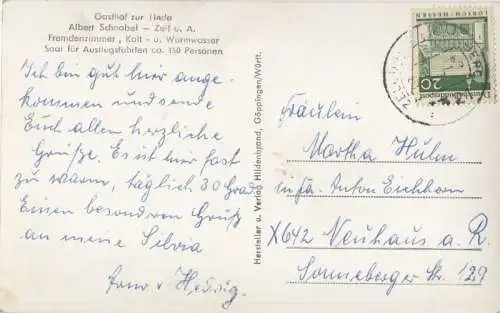 Gasthof zur Linde
Albert Schnabel – Zell u. A.
Fremdenzimmer, Kalt- u. Warmwasser
Saal für Ausflugsfahrten ca. 150 Personen
Ich bin gut hier ange-
kommen und sende
Euch allen herzliche
Grüße. Es ist hier fast
zu warm, täglich 30 Grad.
Einen besonderen Gruß
an meine Silvia
Hersteller u. Verlag Hildenbrand, Göppingen/Württ.
Deutsche Bundespost
20
LORSCH/HESSEN
Fräulein
Martha Hulm
in fa. Anton Eichhorn
X642 Neuhaus a. R.
Sonneberger Str. 129